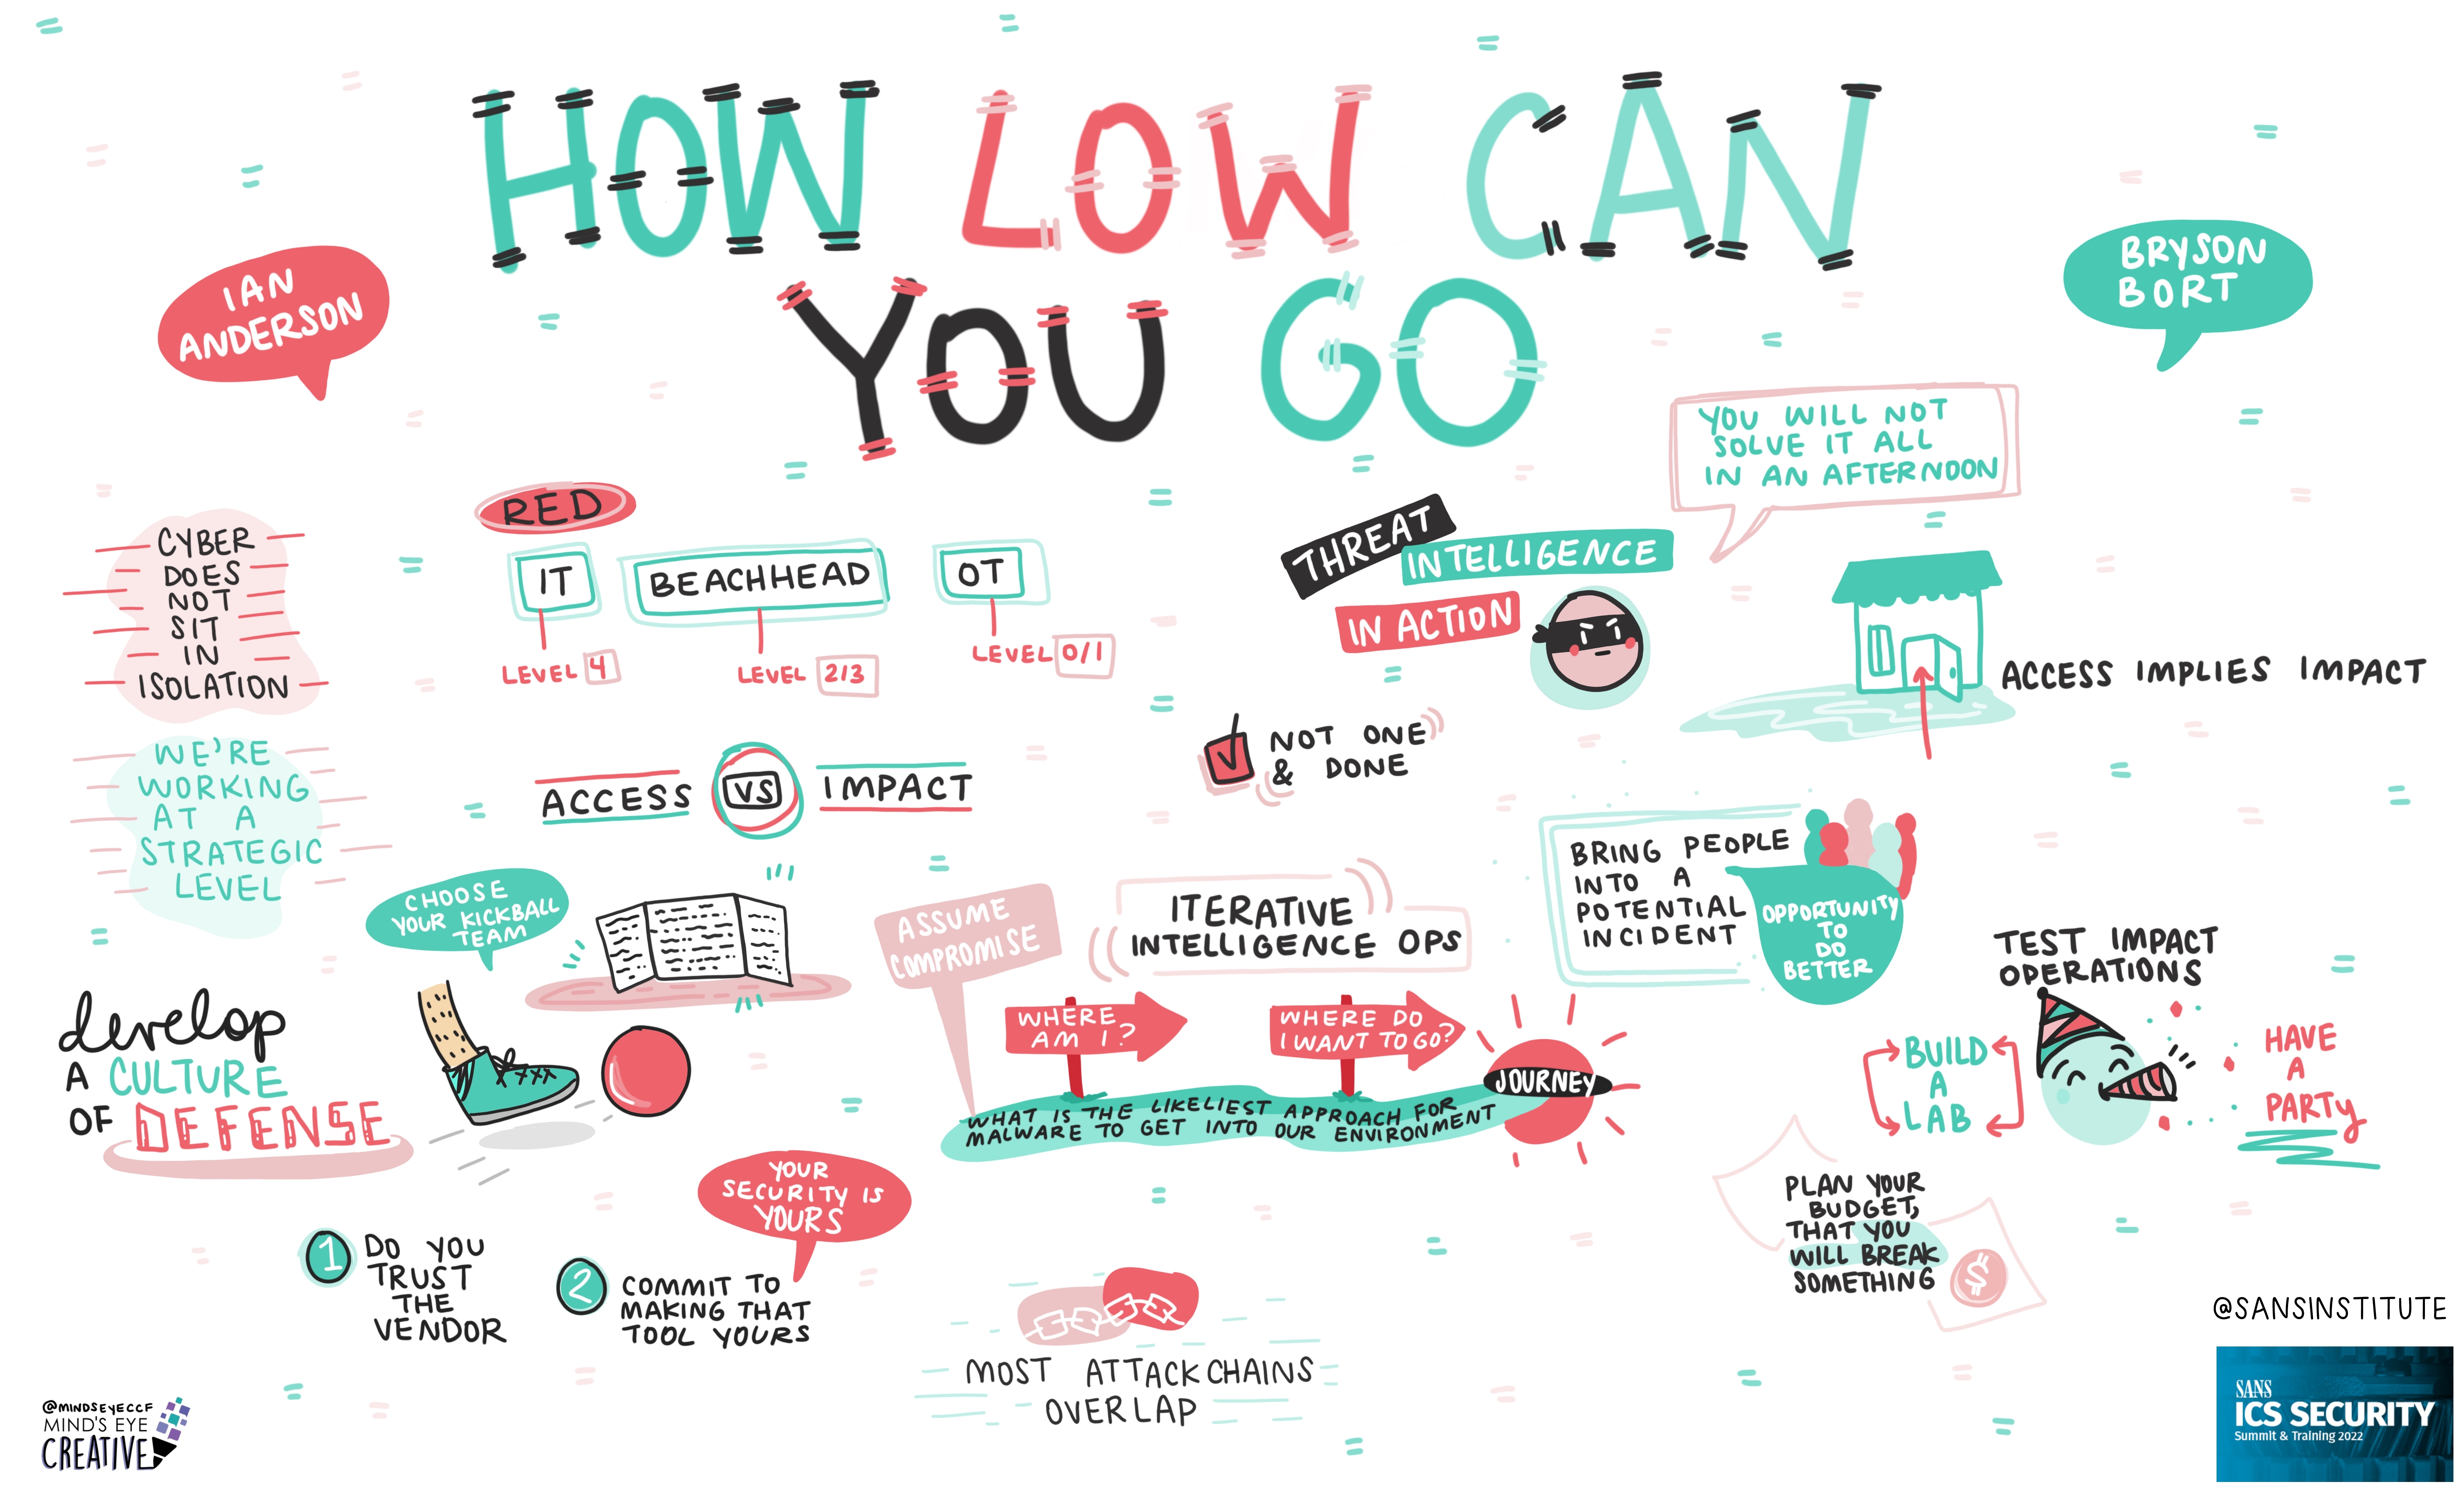 HOW LOW CAN
YOU GO
IAN
ANDERSON
BRYSON
BORT
YOU WILL NOT
SOLVE IT ALL
IN AN AFTERNOON
CYBER
DOES
NOT
SIT
IN
ISOLATION
RED
IT
BEACHHEAD
OT
LEVEL 4
LEVEL 2/3
LEVEL 0/1
THREAT
INTELLIGENCE
IN ACTION
ACCESS IMPLIES IMPACT
WE'RE
WORKING
AT A
STRATEGIC
LEVEL
ACCESS VS IMPACT
NOT ONE
& DONE
CHOOSE
YOUR KICKBALL
TEAM
ASSUME
COMPROMISE
ITERATIVE
INTELLIGENCE OPS
BRING PEOPLE
INTO A
POTENTIAL
INCIDENT
OPPORTUNITY
TO
DO
BETTER
TEST IMPACT
OPERATIONS
develop
A CULTURE
OF DEFENSE
WHERE
AM I?
WHERE DO
I WANT TO GO?
JOURNEY
WHAT IS THE LIKELIEST APPROACH FOR
MALWARE TO GET INTO OUR ENVIRONMENT
BUILD
A
LAB
HAVE
A
PARTY
YOUR
SECURITY IS
YOURS
1 DO YOU
TRUST
THE
VENDOR
2 COMMIT TO
MAKING THAT
TOOL YOURS
PLAN YOUR
BUDGET,
THAT YOU
WILL BREAK
SOMETHING
$
MOST ATTACK CHAINS
OVERLAP
@SANSINSTITUTE
@MINDSEYECCF
MIND'S EYE
CREATIVE
SANS
ICS SECURITY
Summit & Training 2022